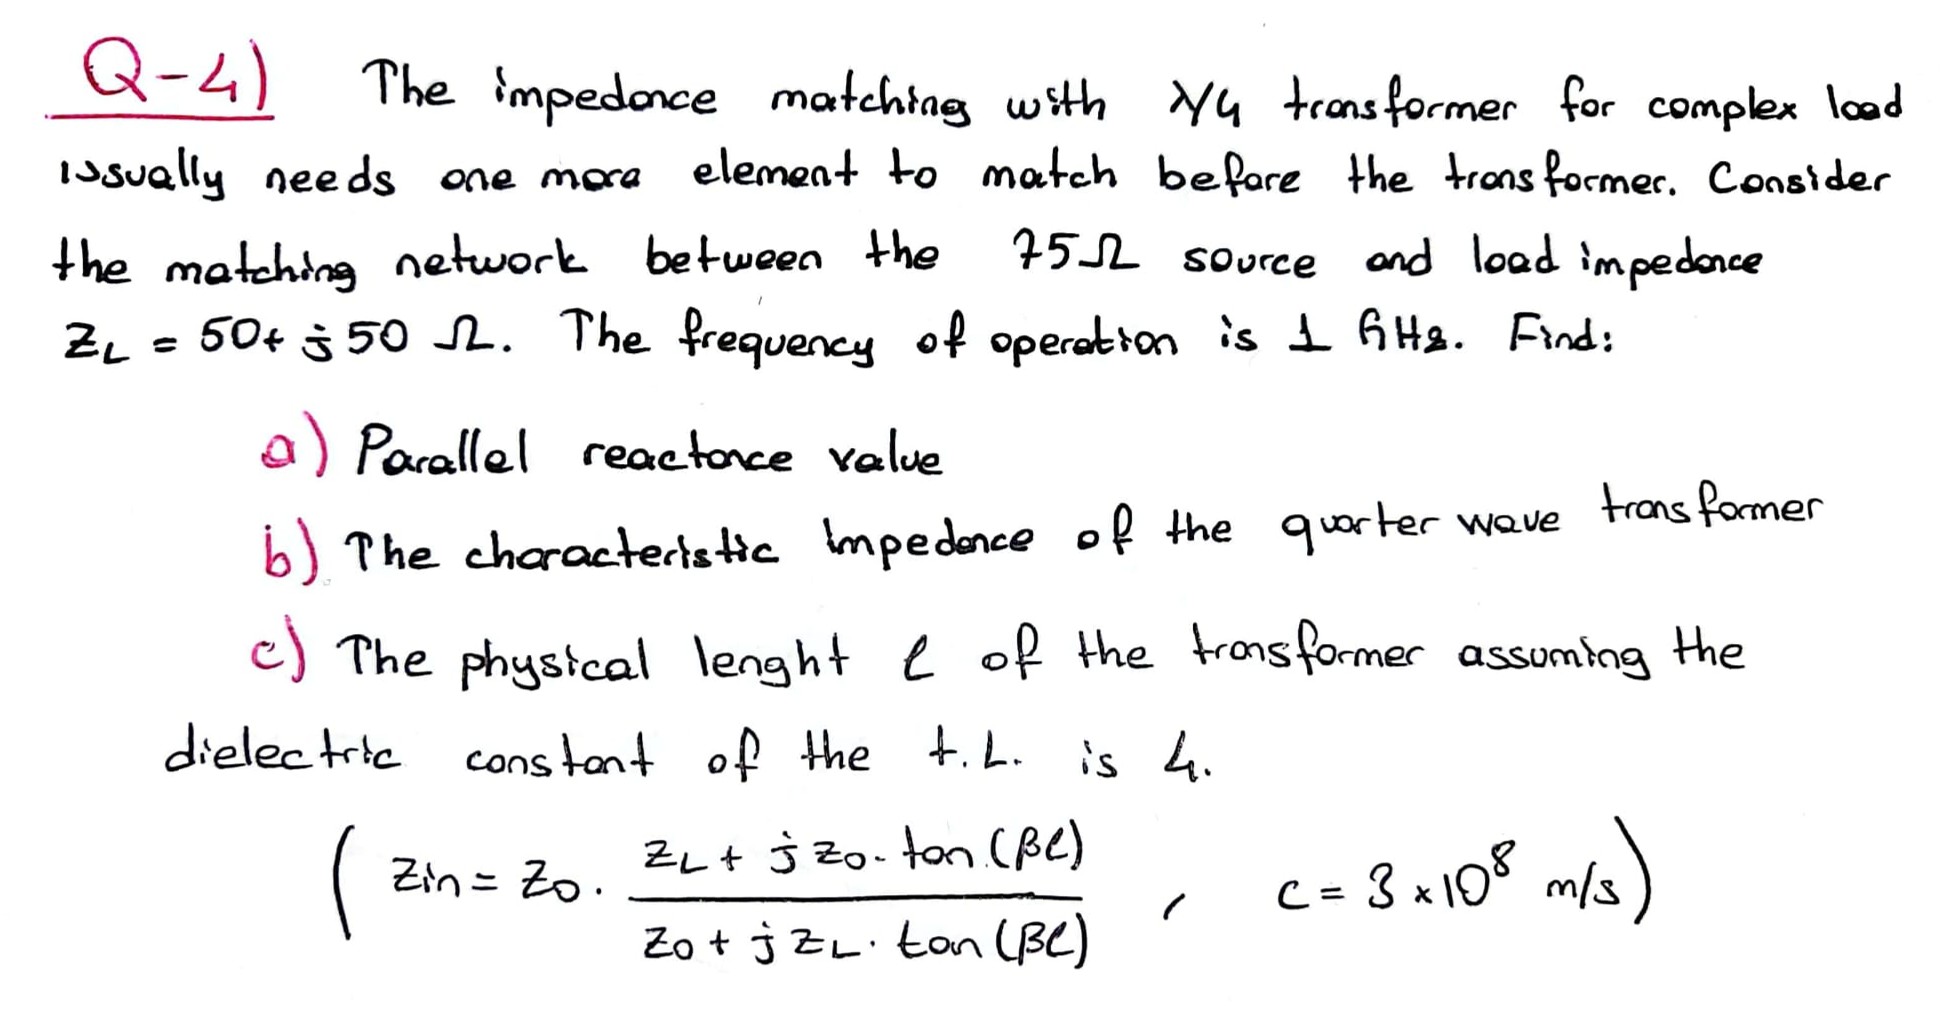 Q-4) The impedance matching with λ/4 transformer for complex load
usually needs one more element to match before the transformer. Consider
the matching network between the 75Ω source and load impedance
ZL = 50+j50 Ω. The frequency of operation is 1 GHz. Find:
a) Parallel reactance value
b) The characteristic impedance of the quarter wave transformer
c) The physical lenght ℓ of the transformer assuming the
dielectric constant of the t.L. is 4.
( Zin = Zo . (ZL + j Zo . tan (βℓ)) / (Zo + j ZL . tan (βℓ)) , c = 3 x 10⁸ m/s )